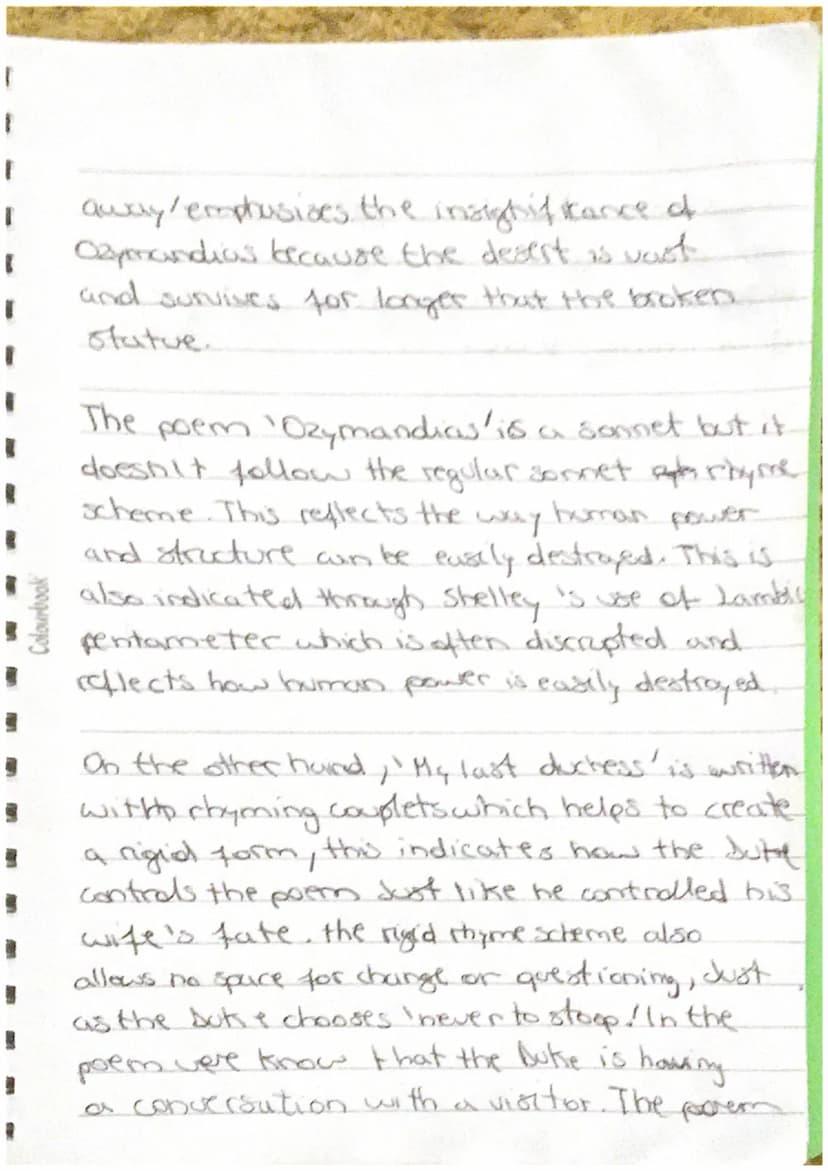 away/emphasises the insighificance of
Ozymandias because the desert is vast
and survives for longer that the broken
statue.
The poem 'Ozymandias' is a sonnet but it
doesn't follow the regular sonnet rhyme
scheme. This reflects the way human power
and structure can be easily destroyed. This is
also indicated through Shelley's use of Iambic
pentameter which is often discrupted and
reflects how human power is easily destroyed.
On the other hand, 'My last duchess' is written
with rhyming couplets which helps to create
a rigid form, this indicates how the Duke
controls the poem Just like he controlled his
wife's fate. the rigid rhyme scheme also
allows no space for change or questioning, Just
as the Duke chooses 'never to stoop! In the
poem were know that the Duke is having
a conversation with a visitor. The poem
Colourbook